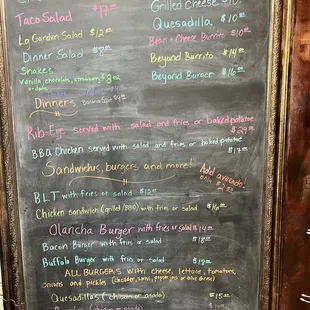 Taco Salad $12.00
La Garden Salad $12.00
Dinner Salad $8.00
Shakes
vanilla, chocolate, strawberry $8.00
Grilled Cheese $10.00
Quesadilla $10.00
Bean + Cheese Burrito $10.00
Beyond Burrito $14.00
Beyond Burger $16.00
Dinners
Rib-Eye served with salad and fries or baked potatoe
$29.00
BBQ Chicken served with salad and fries or baked potatoe
$17.00
Sandwiches, burgers and more!
Add avocado!
only
BLT with fries or salad $12.00
Chicken sandwich (grilled/BBQ) with fries or salad
Olancha Burger with fries or salad $14.00
Bacon Burger with fries or salad
Buffalo Burger with fries or salad $18.00
ALL BURGERS with cheese, lettuce, tomatoes,
onions and pickles (cheddar, swiss, pepper jack or blue cheese)
Quesadillas (chicken or asada) $15.00